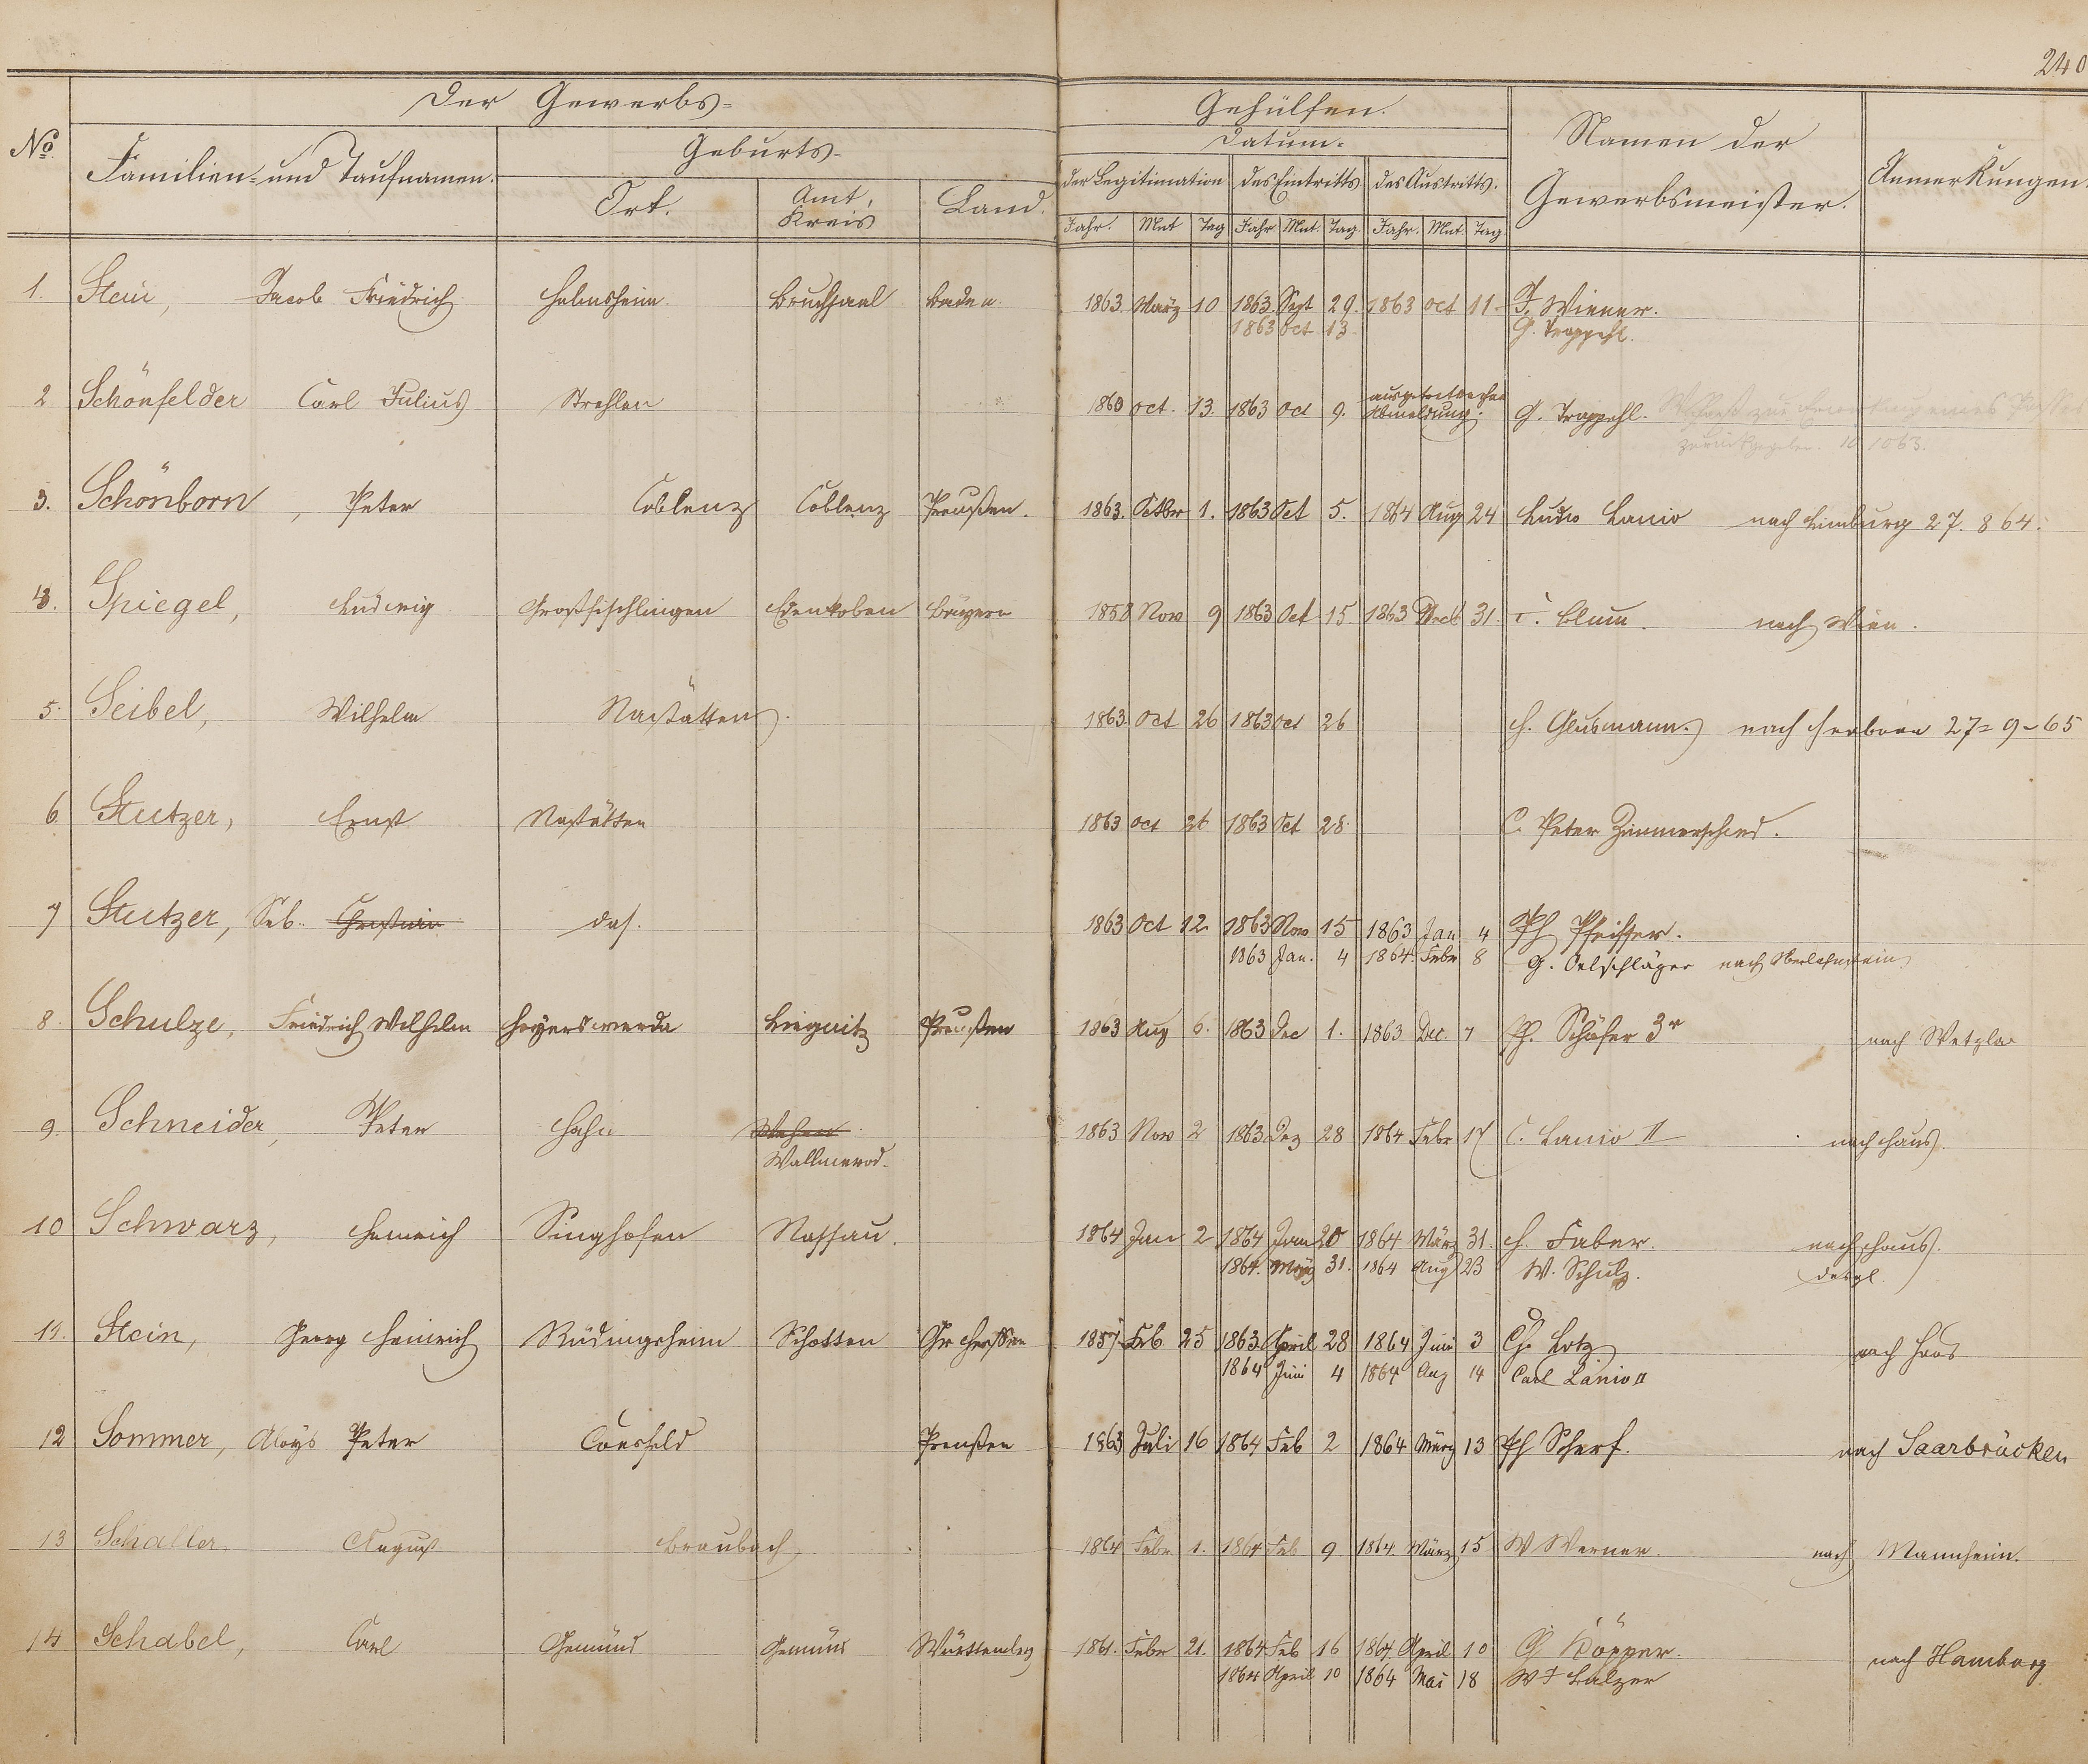 240
Der Gewerbs-
Gehülfen.
No
Familien- und Taufnamen.
Geburts-
Ort.
Amt, Kreis
Land.
Datum-
der Legitimation
des Eintritts
des Austritts.
Jahr. Mnt Tag Jahr Mnt. Tag. Jahr. Mnt. Tag.
Namen der
Gewerbsmeister.
Anmerkungen.
1. Stein, Jacob Friedrich Helmsheim. Bruchsaal Baden. 1863. März 10 1863. Sept 29. 1863 oct 11. F. Wiener.
1863 oct 13. G. Trappehl.
2 Schönfelder Carl Julius Strehlen 1860 oct. 13. 1863 oct 9. Abmeldung. G. Trappehl. eines Passes
zurückgegeben. 10 1063.
3. Schönborn, Peter Coblenz Coblenz Preußen. 1863. Octbr 1. 1863 Oct 5. 1864 Aug 24 Ludw Lanio nach Limburg 27. 8 64.
4. Spiegel, Ludwig Großfischlingen Edenkoben Bayern 1858 Nov 9 1863 Oct 15. 1863 Decb 31. C. Blum. nach Wien.
5. Seibel, Wilhelm Nastätten. 1863. Oct 26 1863 oct 26 H. Glusmann. nach Herborn 27=9-65
6. Stutzer, Ernst Nastätten 1863 oct 26 1863 Oct 28. C. Peter Zimmerschied.
7 Stutzer, Seb. Christian das. 1863 Oct 12. 1863 Nov 15 1863 Jan 4 Ph Pfeiffer.
1863 Jan. 4 1864. Febr 8 G. Oelschläger nach Oberlahnstein
8. Schulze, Friedrich Wilhelm Hoyerswerda Liegnitz Preußen 1863 Aug 6. 1863 Dec 1. 1863 Dec. 7 Ph. Schäfer 3r nach Wetzlar
9. Schneider, Peter Hahn Wehen 1863 Nov 2 1863 Dez 28 1864 Febr 17 C. Lanio II nach Haus.
Wallmerod.
10 Schwarz, Heinrich Singhofen Nassau. 1864 Jan 2 1864 Jan 20 1864 März 31. H. Faber. nach Haus.
1864. März 31. 1864 Aug 23 W. Schulz. desgl.
11. Stein, Georg Heinrich Rüdingsheim Schotten Gr Hessen 1857 Feb. 25 1863. April 28 1864 Juni 3 Ch. Lotz nach Haus
1864 Juni 4 1864 Aug 14 Carl Lanio II
12 Sommer, Aloys Peter Coesfeld Preußen 1863 Juli 16 1864 Feb 2 1864 März 13 Ph Scharf. nach Saarbrücken
13 Schaller, August Braubach 1864 Febr 1. 1864 Feb 9. 1864. März 15 W Werner. nach Mannheim.
14 Schabel, Carl Gemünd Gemünd Württemberg 1861. Febr 21. 1864. Feb 16 1864. April 10 G Köpper. nach Hamburg
1864 April 10 1864 Mai 18 W F Balzer